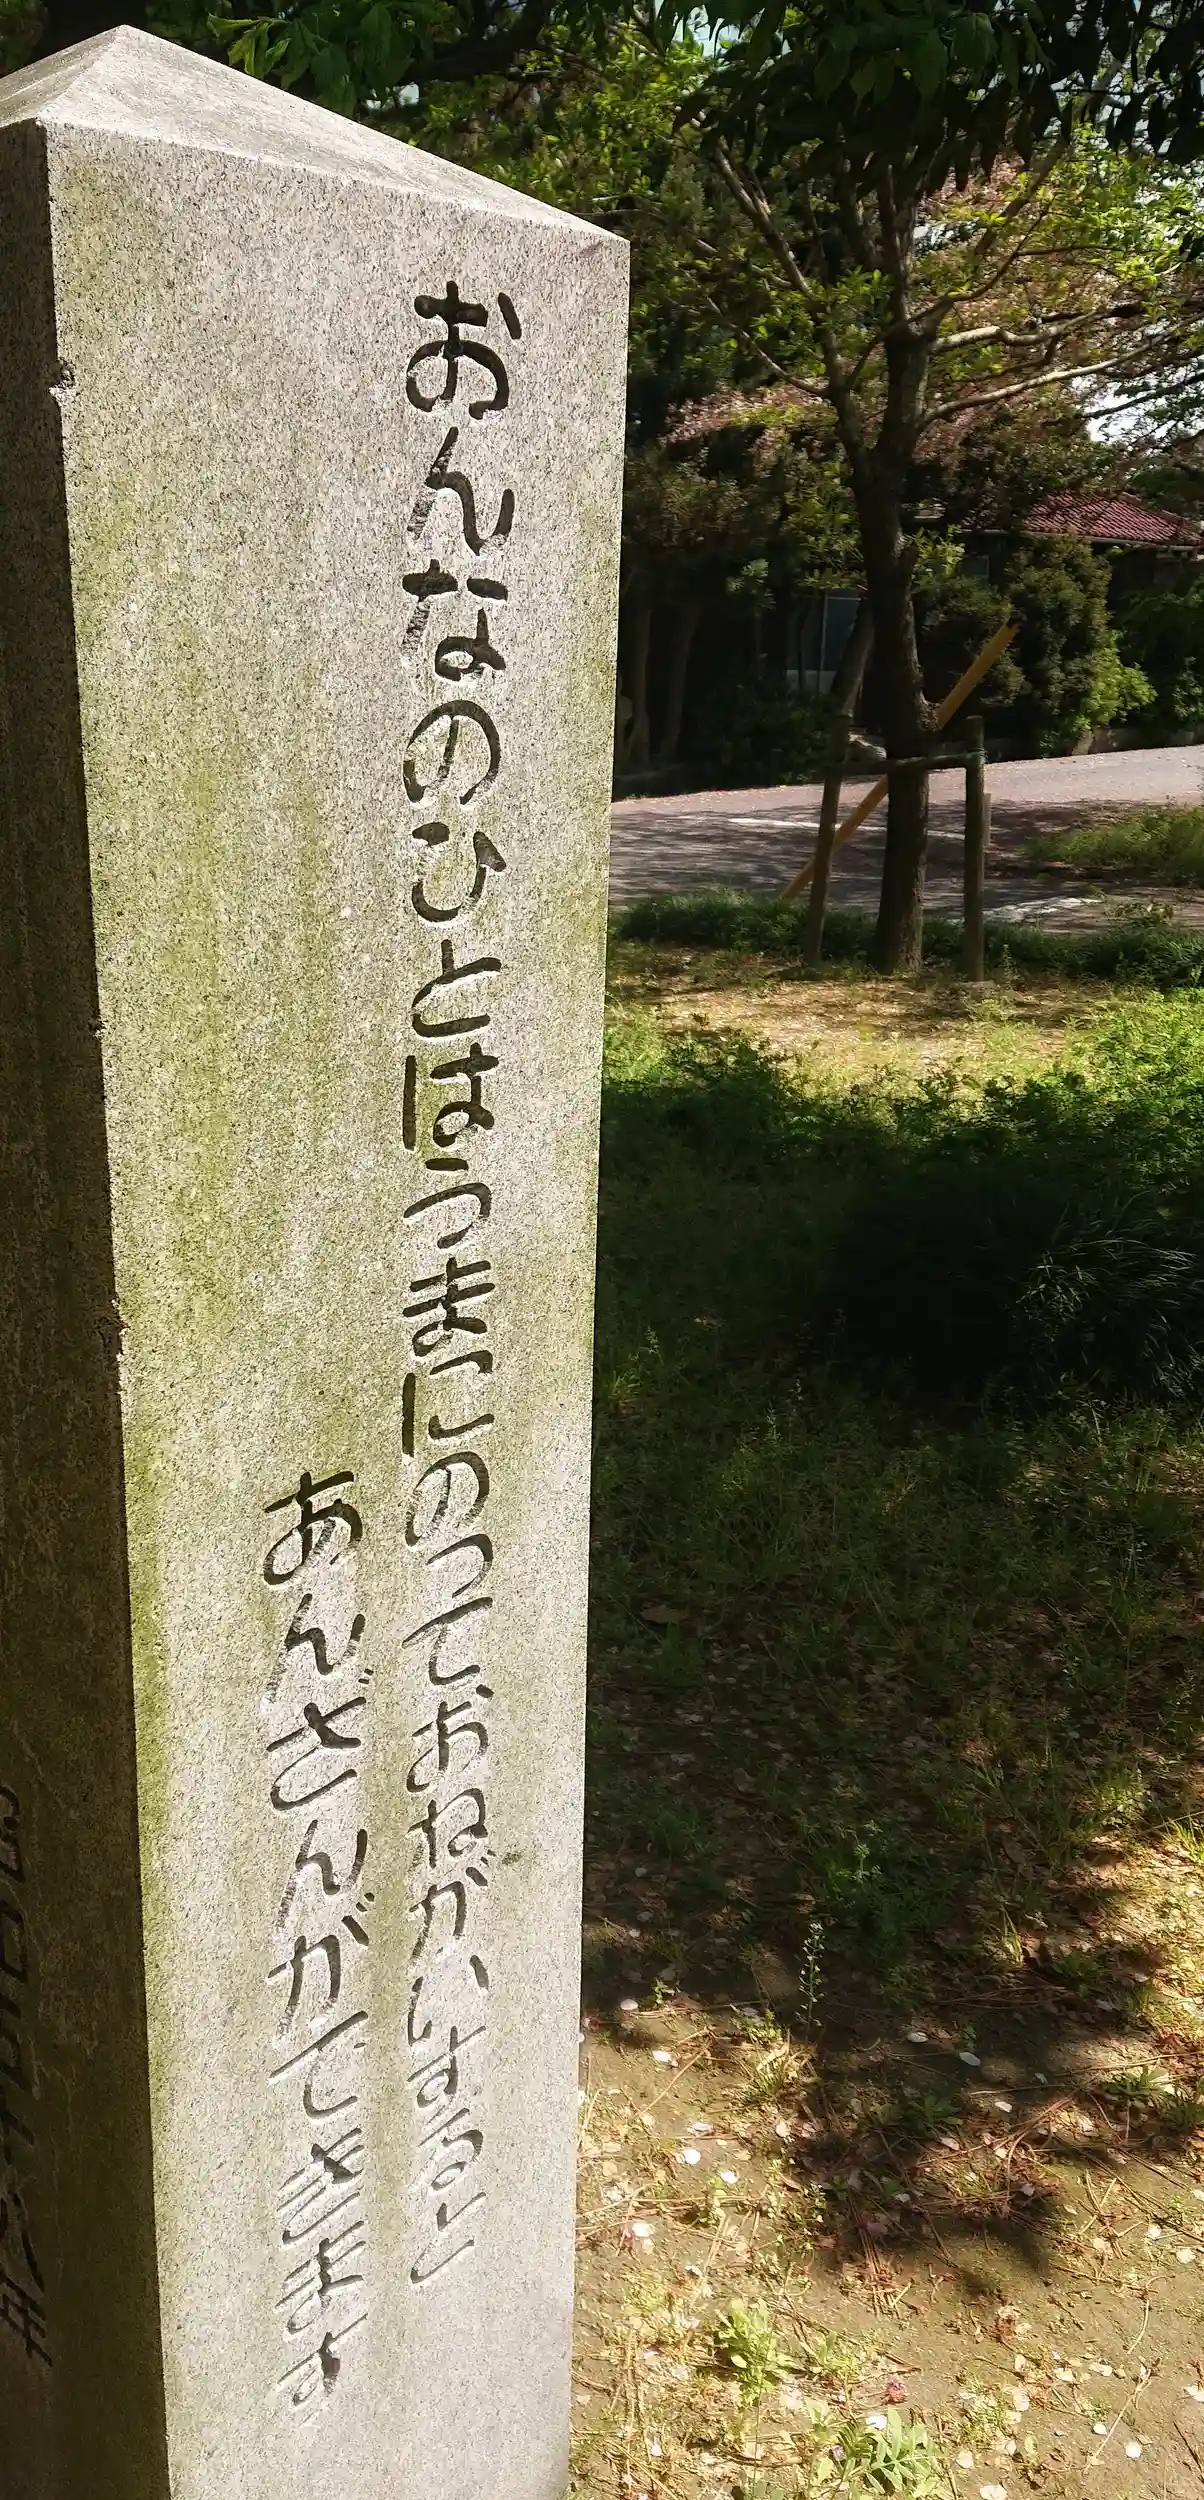 おんなのひとはうまにのっておねがいすると
あんざんができます